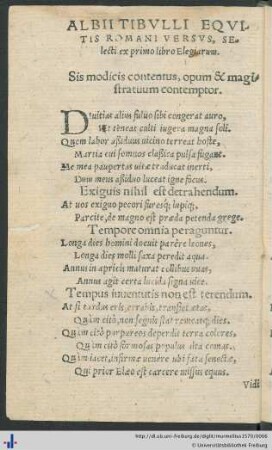 ALBII TIBVLLI EQVI
TIS ROMANI VERSVS, SE
lecti ex primo libro Elegiarum.
Sis modicis contentus, opum & magi
stratuum contemptor.
Diuitias alius fuluo sibi congerat auro,
Et teneat culti iugera magna soli.
Quem labor assiduus uicino terreat hoste,
Martia cui somnos classica pulsa fugant.
Me mea paupertas uitæ traducat inerti,
Dum meus assiduo luceat igne focus.
Exiguis nihil est detrahendum.
At uos exiguo pecori furesque lupique,
Parcite, de magno est præda petenda grege.
Tempore omnia peraguntur.
Longa dies homini docuit parêre leones,
Longa dies molli saxa peredit aqua.
Annus in apricis maturat collibus uuas,
Annus agit certa lucida signa uice.
Tempus iuuentutis non est terendum.
At si tardus eris, errabis, transiet ætas,
Quàm citò, non segnis stat remeatque dies.
Quàm citò purpureos deperdit terra colores,
Quàm citò
Quàm iacet, infirmæ uenêre ubi fata senectæ,
Qui prior Elæo est carcere missus equus.
Vidi
http://dl.ub.uni-freiburg.de/diglit/murmellius1570/0006
Universitätsbibliothek Freiburg